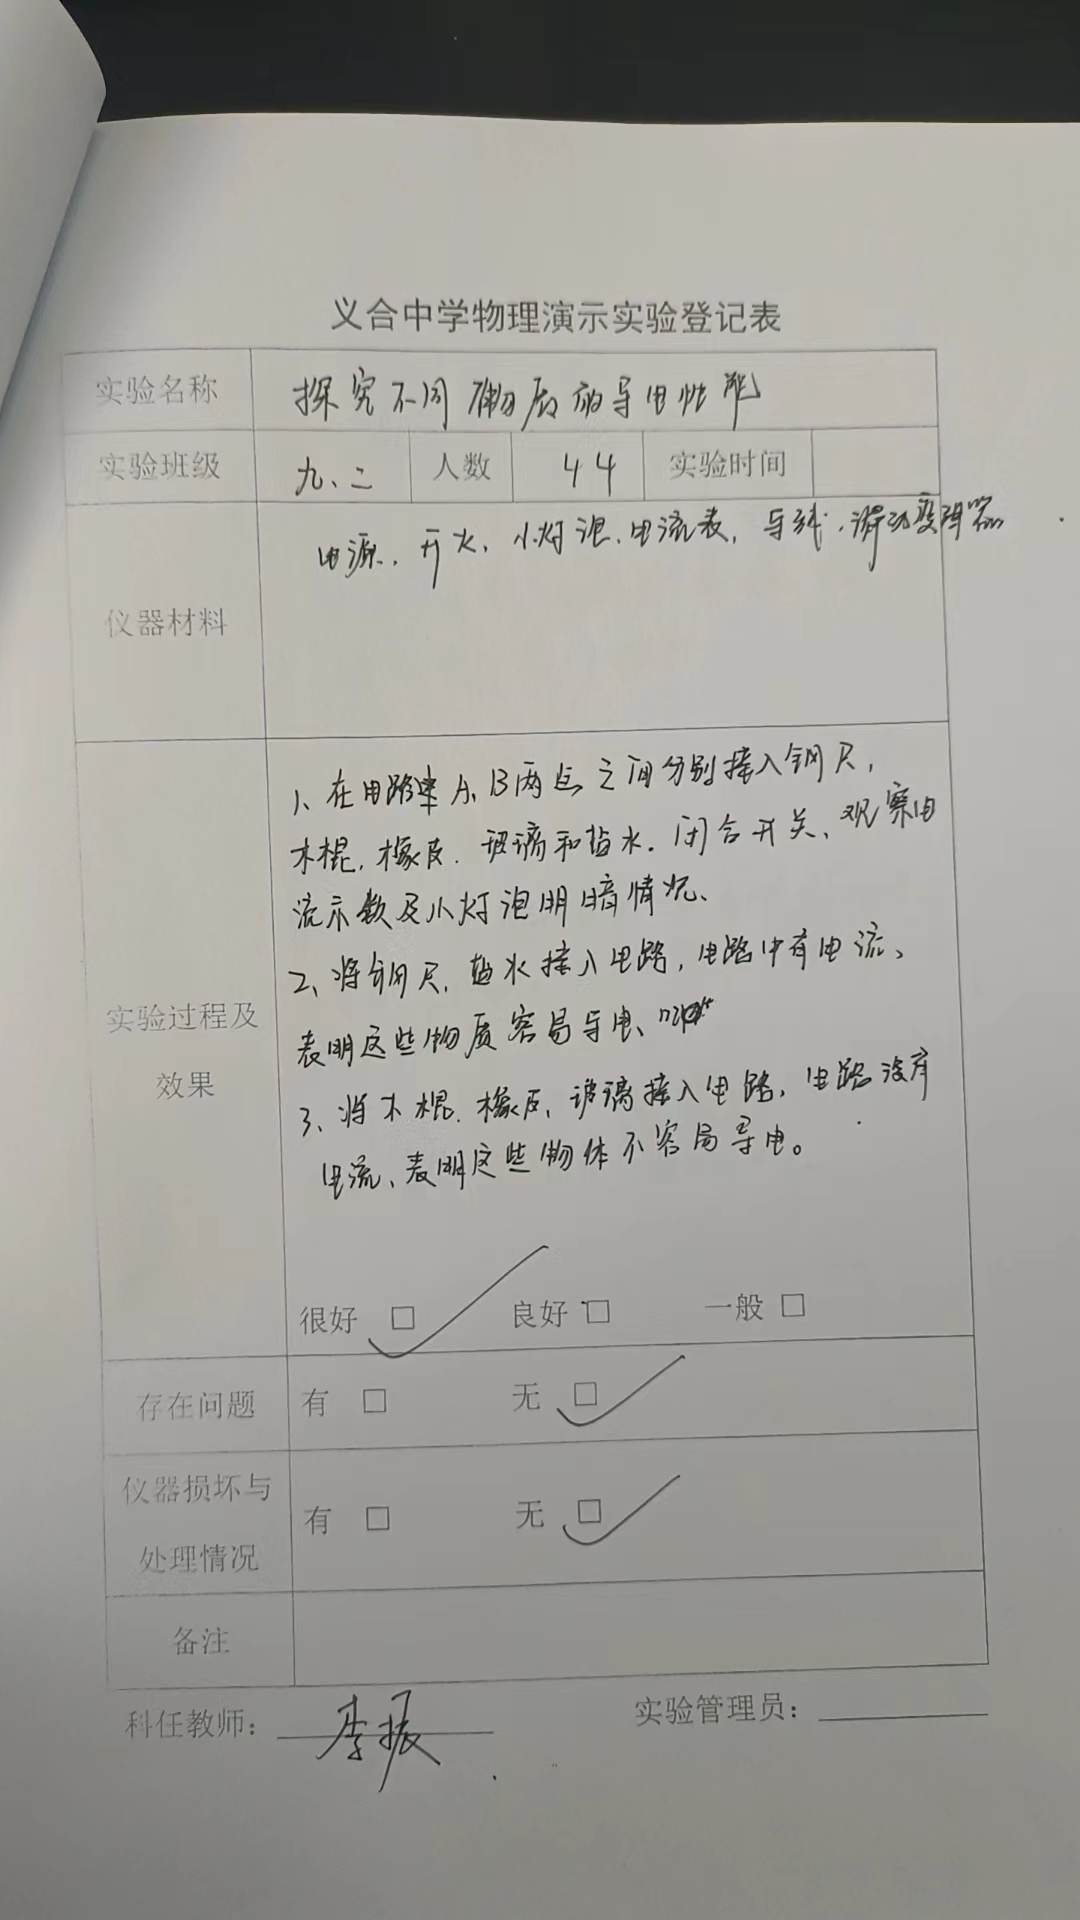 义合中学物理演示实验登记表
实验名称 探究不同物质的导电性能
实验班级 九、二 人数 44 实验时间
仪器材料 电源、开关、小灯泡、电流表、导线、滑动变阻器
1、在电路 A、B两点之间分别接入钢尺,
木棍、橡皮、玻璃和盐水.闭合开关、观察电
流示数及小灯泡明暗情况、
2、将钢尺、盐水接入电路,电路中有电流、
实验过程及效果
表明这些物质容易导电、
3、将木棍、橡皮、玻璃接入电路,电路没有
电流、表明这些物体不容易导电。
很好 □ 良好 □ 一般 □
存在问题 有 □ 无 □
仪器损坏与处理情况 有 □ 无 □
备注
科任教师: 李振 实验管理员: